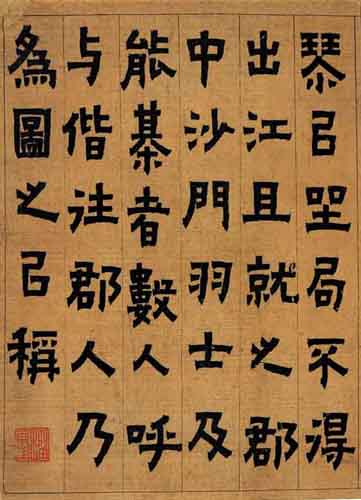 琴㠯坐局不得
出江且就之郡
中沙門羽士及
能棊者數人呼
与偕往郡人乃
為圖之㠯稱